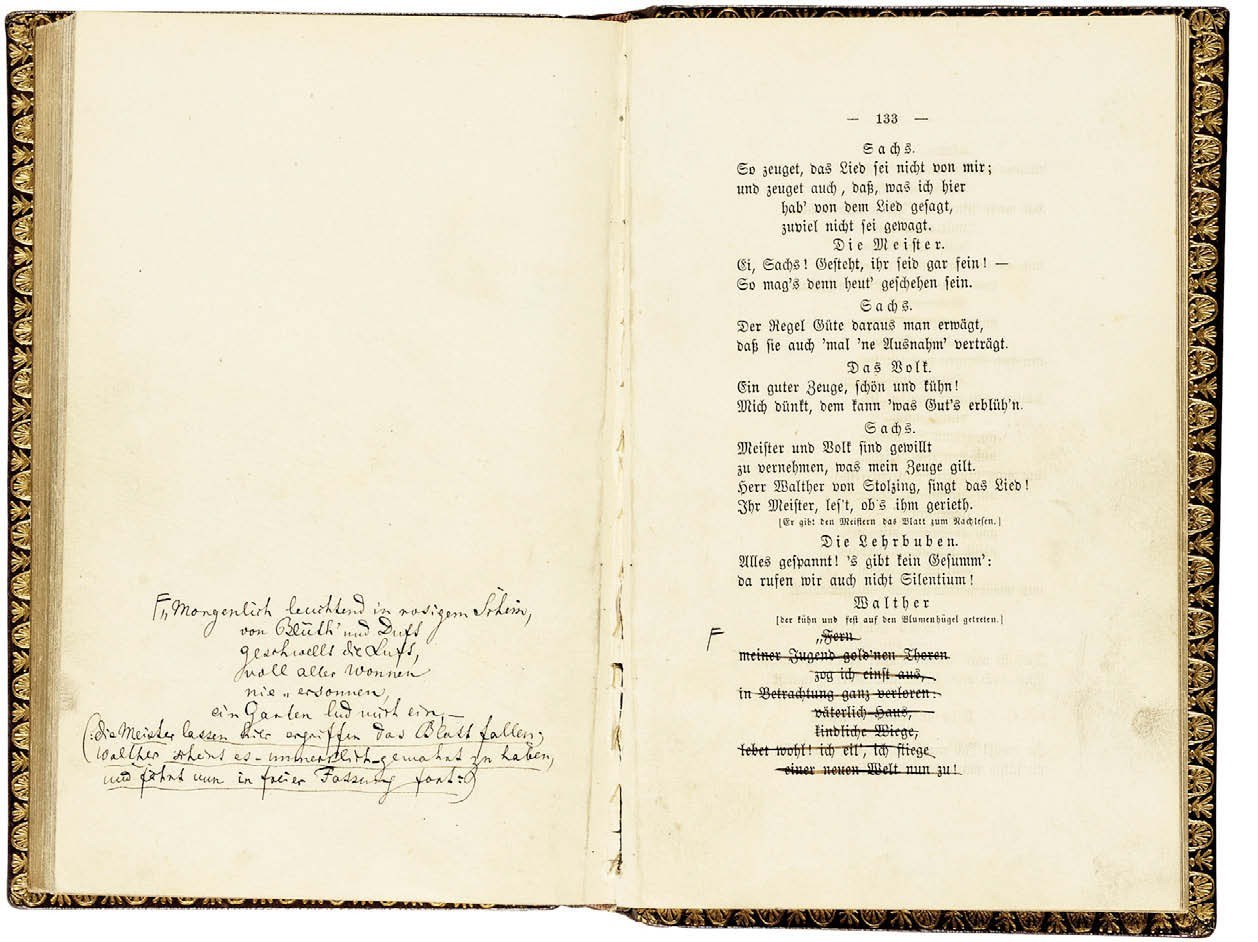 F „Morgenlich leuchtend in rosigem Schein,
von Blüth' und Duft
geschwellt die Luft,
voll aller Wonnen
nie ersonnen,
ein Garten lud mich ein,–
(: die Meister lassen hier ergriffen das Blatt fallen;
Walther scheint es – unmerklich – gewahrt zu haben,
und fährt nun in freier Fassung fort :)
— 133 —
Sachs.
So zeuget, das Lied sei nicht von mir;
und zeuget auch, daß, was ich hier
hab' von dem Lied gesagt,
zuviel nicht sei gewagt.
Die Meister.
Ei, Sachs! Gesteht, ihr seid gar fein! —
So mag's denn heut' geschehen sein.
Sachs.
Der Regel Güte daraus man erwägt,
daß sie auch 'mal 'ne Ausnahm' verträgt.
Das Volk.
Ein guter Zeuge, schön und kühn!
Mich dünkt, dem kann 'was Gut's erblüh'n.
Sachs.
Meister und Volk sind gewillt
zu vernehmen, was mein Zeuge gilt.
Herr Walther von Stolzing, singt das Lied!
Ihr Meister, les't, ob's ihm gerieth.
[Er gibt den Meistern das Blatt zum Nachlesen.]
Die Lehrbuben.
Alles gespannt! 's gibt kein Gesumm':
da rufen wir auch nicht Silentium!
Walther
[der kühn und fest auf den Blumenhügel getreten.]
F „Fern
meiner Jugend gold'nen Thoren
zog ich einst aus,
in Betrachtung ganz verloren:
väterlich Haus,
kindliche Wiege,
lebet wohl! ich eil', ich fliege
einer neuen Welt nun zu!